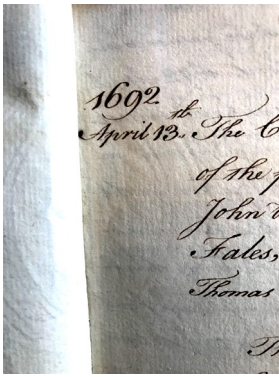 1692
April 13th. The
of the
John
Fales,
Thomas